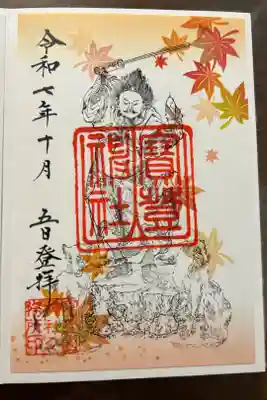 寶登山
神社
令和七年十月
五日登拝